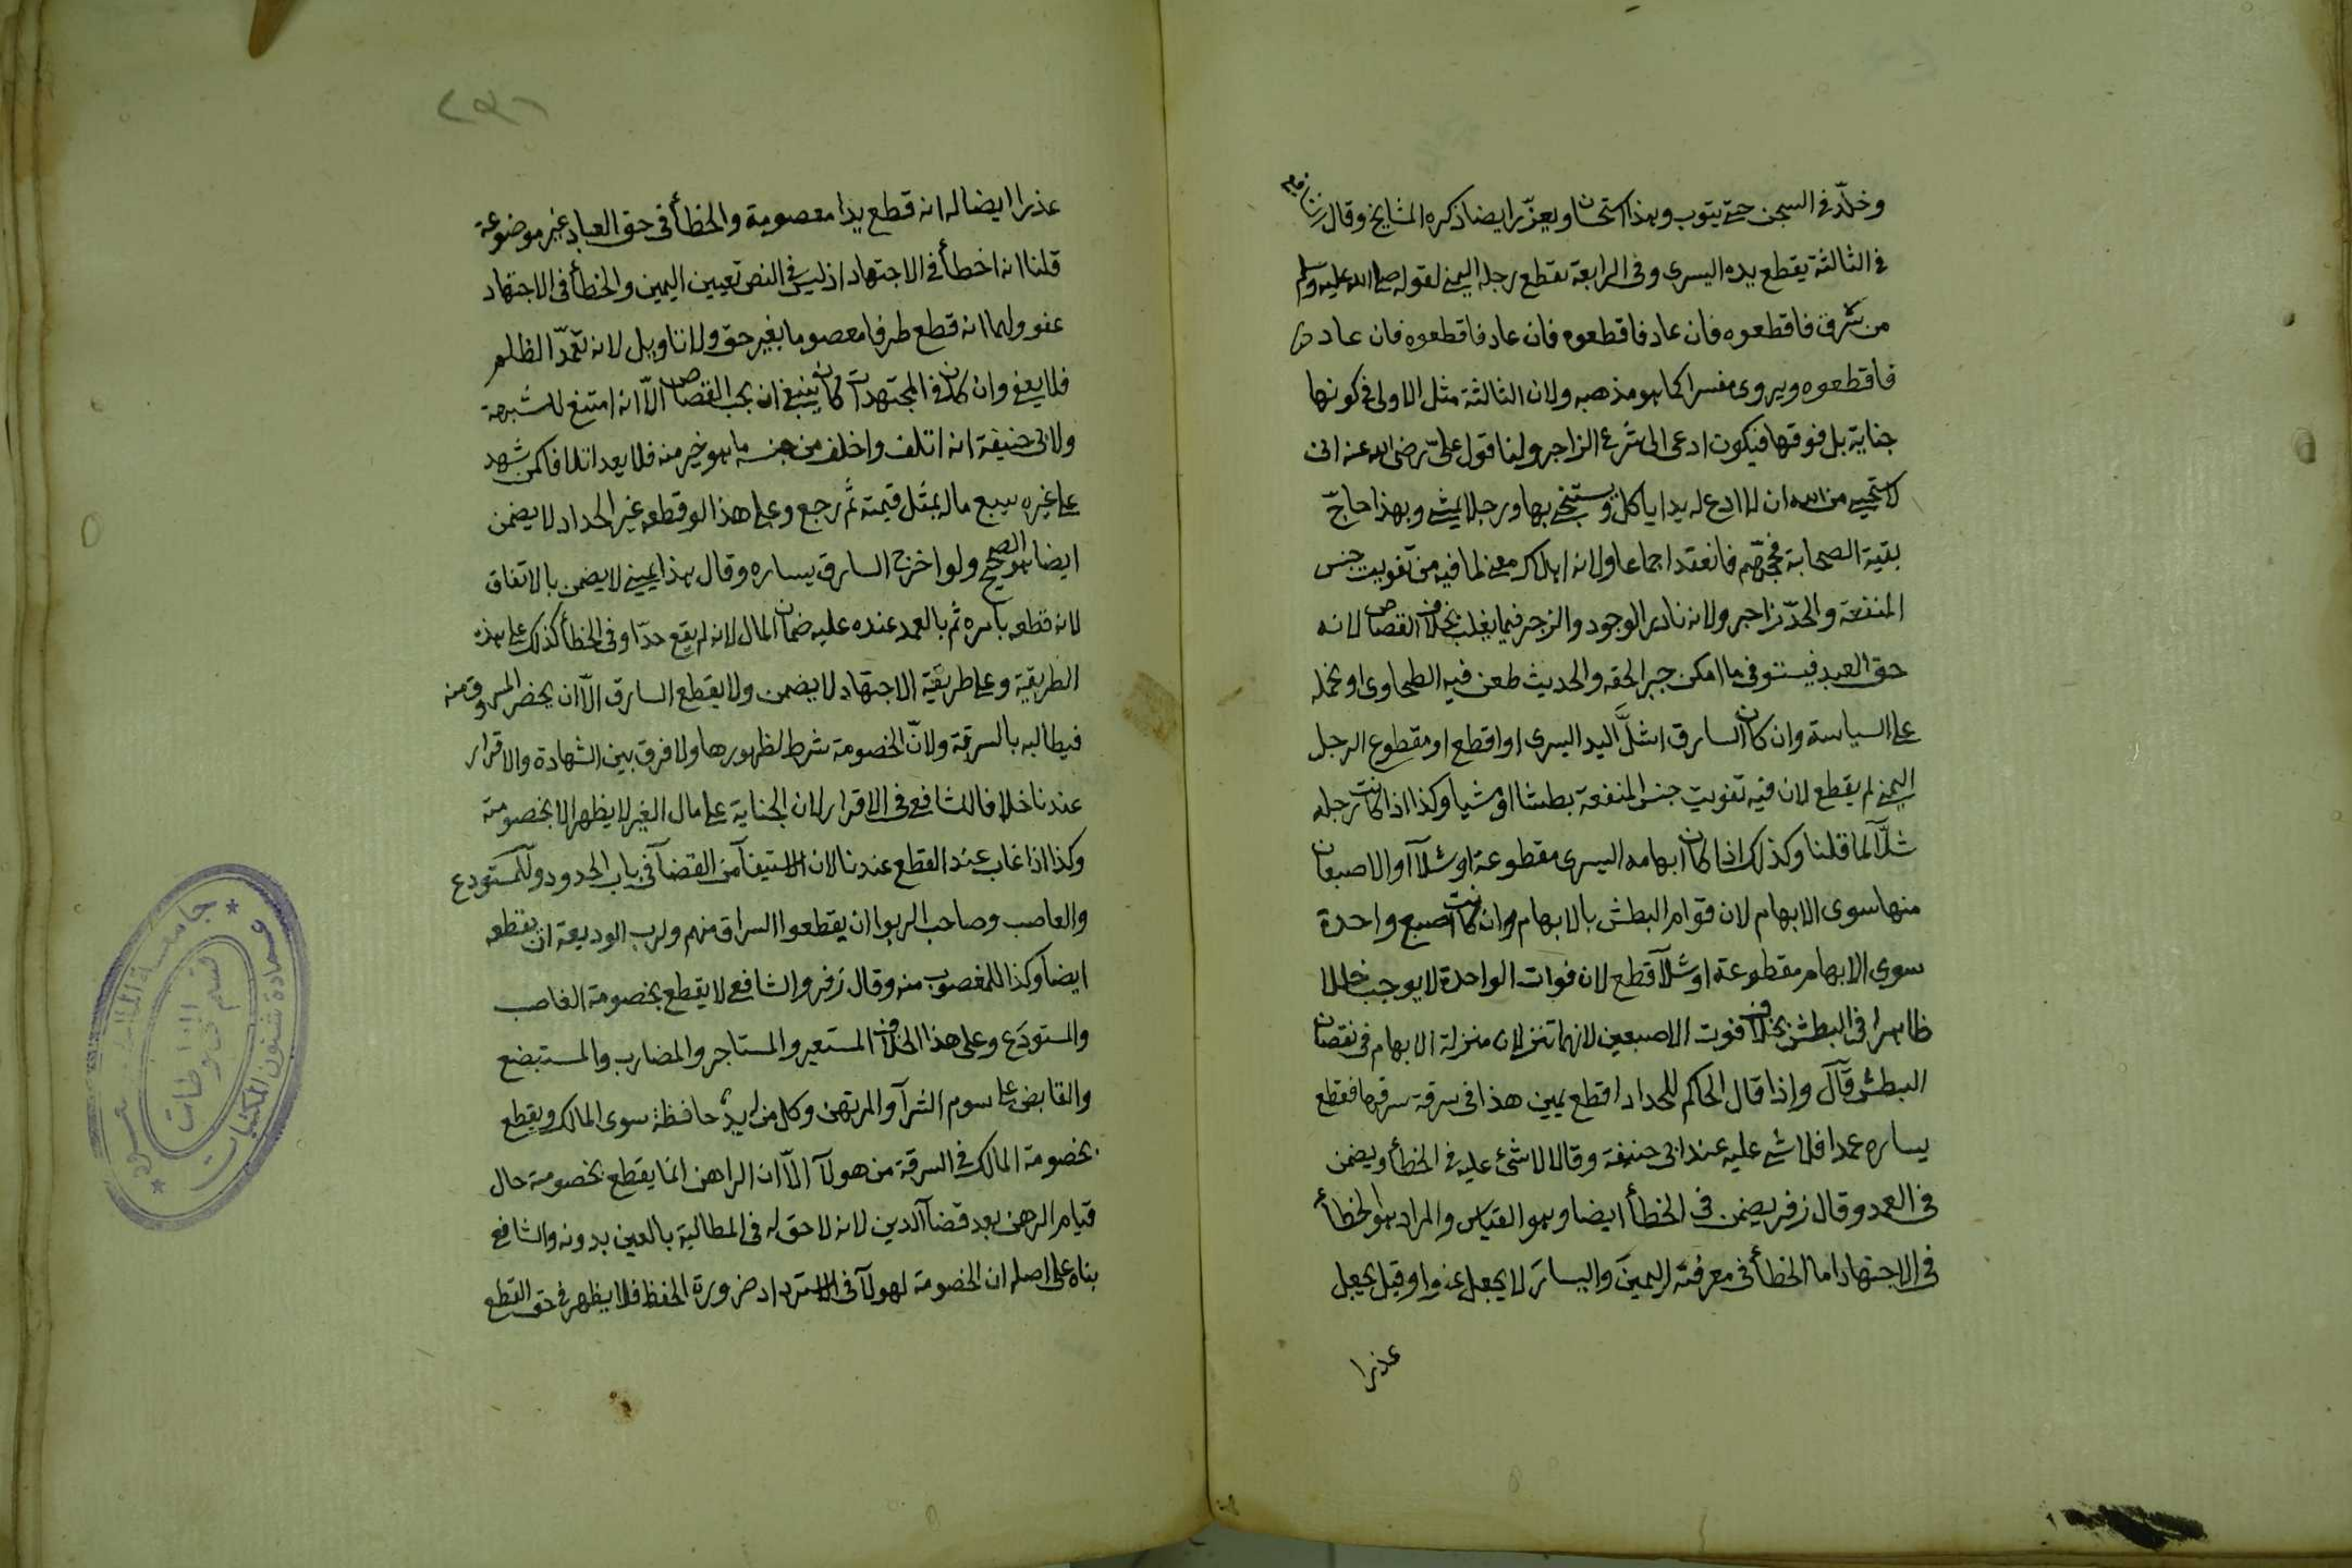 وخلّد في السجن حتى يتوب وهذا استحسان ويعزّر ايضا ذكره المشايخ وقال الشافعي
في الثالثة يقطع يده اليسرى وفي الرابعة يقطع رجله اليمنى لقوله صلى الله عليه وسلم
من سرق فاقطعوه فان عاد فاقطعوه فان عاد فاقطعوه فان عاد
فاقطعوه ويروى مفسرا كما هو مذهبه ولان الثالثة مثل الاولى في كونها
جناية بل فوقها فيكون ادعى الى شرع الزاجر ولنا قول علىّ رضى الله عنه انى
لاستحيى من الله ان لا ادع له يدا ياكل ويستنجى بها ورجلا يمشى وبهذا حاجّ
بقية الصحابة فحجّهم فانعقد اجماعا ولانه اهلاك معنى لما فيه من تفويت جنس
المنفعة والحدّ زاجر ولانه نادر الوجود والزجر فيما يغلب بخلاف القصاص لانه
حق العبد فيستوفى ما امكن جبرا لحقه والحديث طعن فيه الطحاوى او نحمله
على السياسة وان كان السارق اشلّ اليد اليسرى او اقطع او مقطوع الرجل
اليمنى لم يقطع لان فيه تفويت جنس المنفعة بطشا او مشيا وكذا اذا كانت رجله
شلّآ لما قلنا وكذلك اذا كان ابهامه اليسرى مقطوعة او شلآ او الاصبعان
منها سوى الابهام لان قوام البطش بالابهام وان كانت اصبع واحدة
سوى الابهام مقطوعة او شلآ قطع لان فوات الواحدة لا يوجب خللا
ظاهرا في البطش بخلاف فوت الاصبعين لانهما تنزلان منزلة الابهام في نقصان
البطش قال واذا قال الحاكم للحداد اقطع يمين هذا في سرقة سرقها فقطع
يساره عمدا فلا شى عليه عند ابى حنيفة وقالا لا شئ عليه في الخطأ ويضمن
في العمد وقال زفر يضمن في الخطأ ايضا وهو القياس والمراد هو الخطأ
في الاجتهاد اما الخطأ في معرفة اليمين واليسار لا يجعل عفوا وقيل يجعل
عذرا
٢٩٦
عذرا ايضا له انه قطع يدا معصومة والخطأ في حق العباد غير موضوعة
قلنا انه اخطأ في الاجتهاد اذ ليس في النص تعيين اليمين والخطأ في الاجتهاد
عفو ولهما انه قطع طرفا معصوما بغير حق ولا تاويل لانه تعمّد الظلم
فلا يعفى وان كان في المجتهدات كان ينبغى ان يجب القصاص الّا انه امتنع للشبهة
ولابى حنيفة انه اتلف واخلف من جنسه ما هو خير منه فلا يعد اتلافا كمن شهد
على غيره ببيع ماله بمثل قيمته ثم رجع وعلى هذا لو قطعه غير الحداد لا يضمن
ايضا هو الصحيح ولو اخرج السارق يساره وقال هذا يمينى لا يضمن بالاتفاق
لانه قطعه بامره ثم بالعمد عنده عليه ضمان المال لانه لم يقع حدّا وفي الخطأ كذلك على هذه
الطريقة وعلى طريقة الاجتهاد لا يضمن ولا يقطع السارق الّا ان يحضر المسروق منه
فيطالبه بالسرقة ولانّ الخصومة شرط لظهورها ولا فرق بين الشهادة والاقرار
عندنا خلافا للشافعى في الاقرار لان الجناية على مال الغير لا يظهر الا بخصومة
وكذا اذا غاب عند القطع عندنا لان الاستيفآ من القضآ في باب الحدود وللمستودع
والغاصب وصاحب الربوا ان يقطعوا السراق منهم ولرب الوديعة ان يقطعه
ايضا وكذا للمغصوب منه وقال زفر والشافعى لا يقطع بخصومة الغاصب
والمستودَع وعلى هذا الخلاف المستعير والمستاجر والمضارب والمستبضع
والقابض على سوم الشرآ والمرتهن وكل من له يد حافظة سوى المالك ويقطع
بخصومة المالك في السرقة من هولآ الّا ان الراهن انما يقطع بخصومته حال
قيام الرهن بعد قضآ الدين لانه لا حق له في المطالبة بالعين بدونه والشافعى
بناه على اصله ان لا خصومة لهولآ في الاسترداد ضرورة الحفظ فلا يظهر في حق القطع
جامعة الملك سعود
عمادة شئون المكتبات
قسم المخطوطات